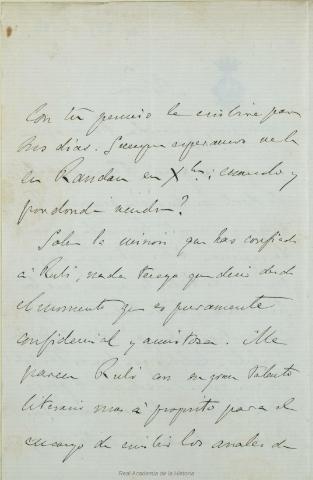 Con tu permiso le escribiré para
sus dias. Siempre esperamos verla
en Randan en Xbre; cuando y
por donde vendra?
Sobre la mision que has confiado
á Rubi, nada tengo que decir desde
el momento que es puramente
confidencial y amistosa. Me
parece Rubi con su gran talento
literario mas á proposito para el
encargo de escribir los anales de
Real Academia de la Historia